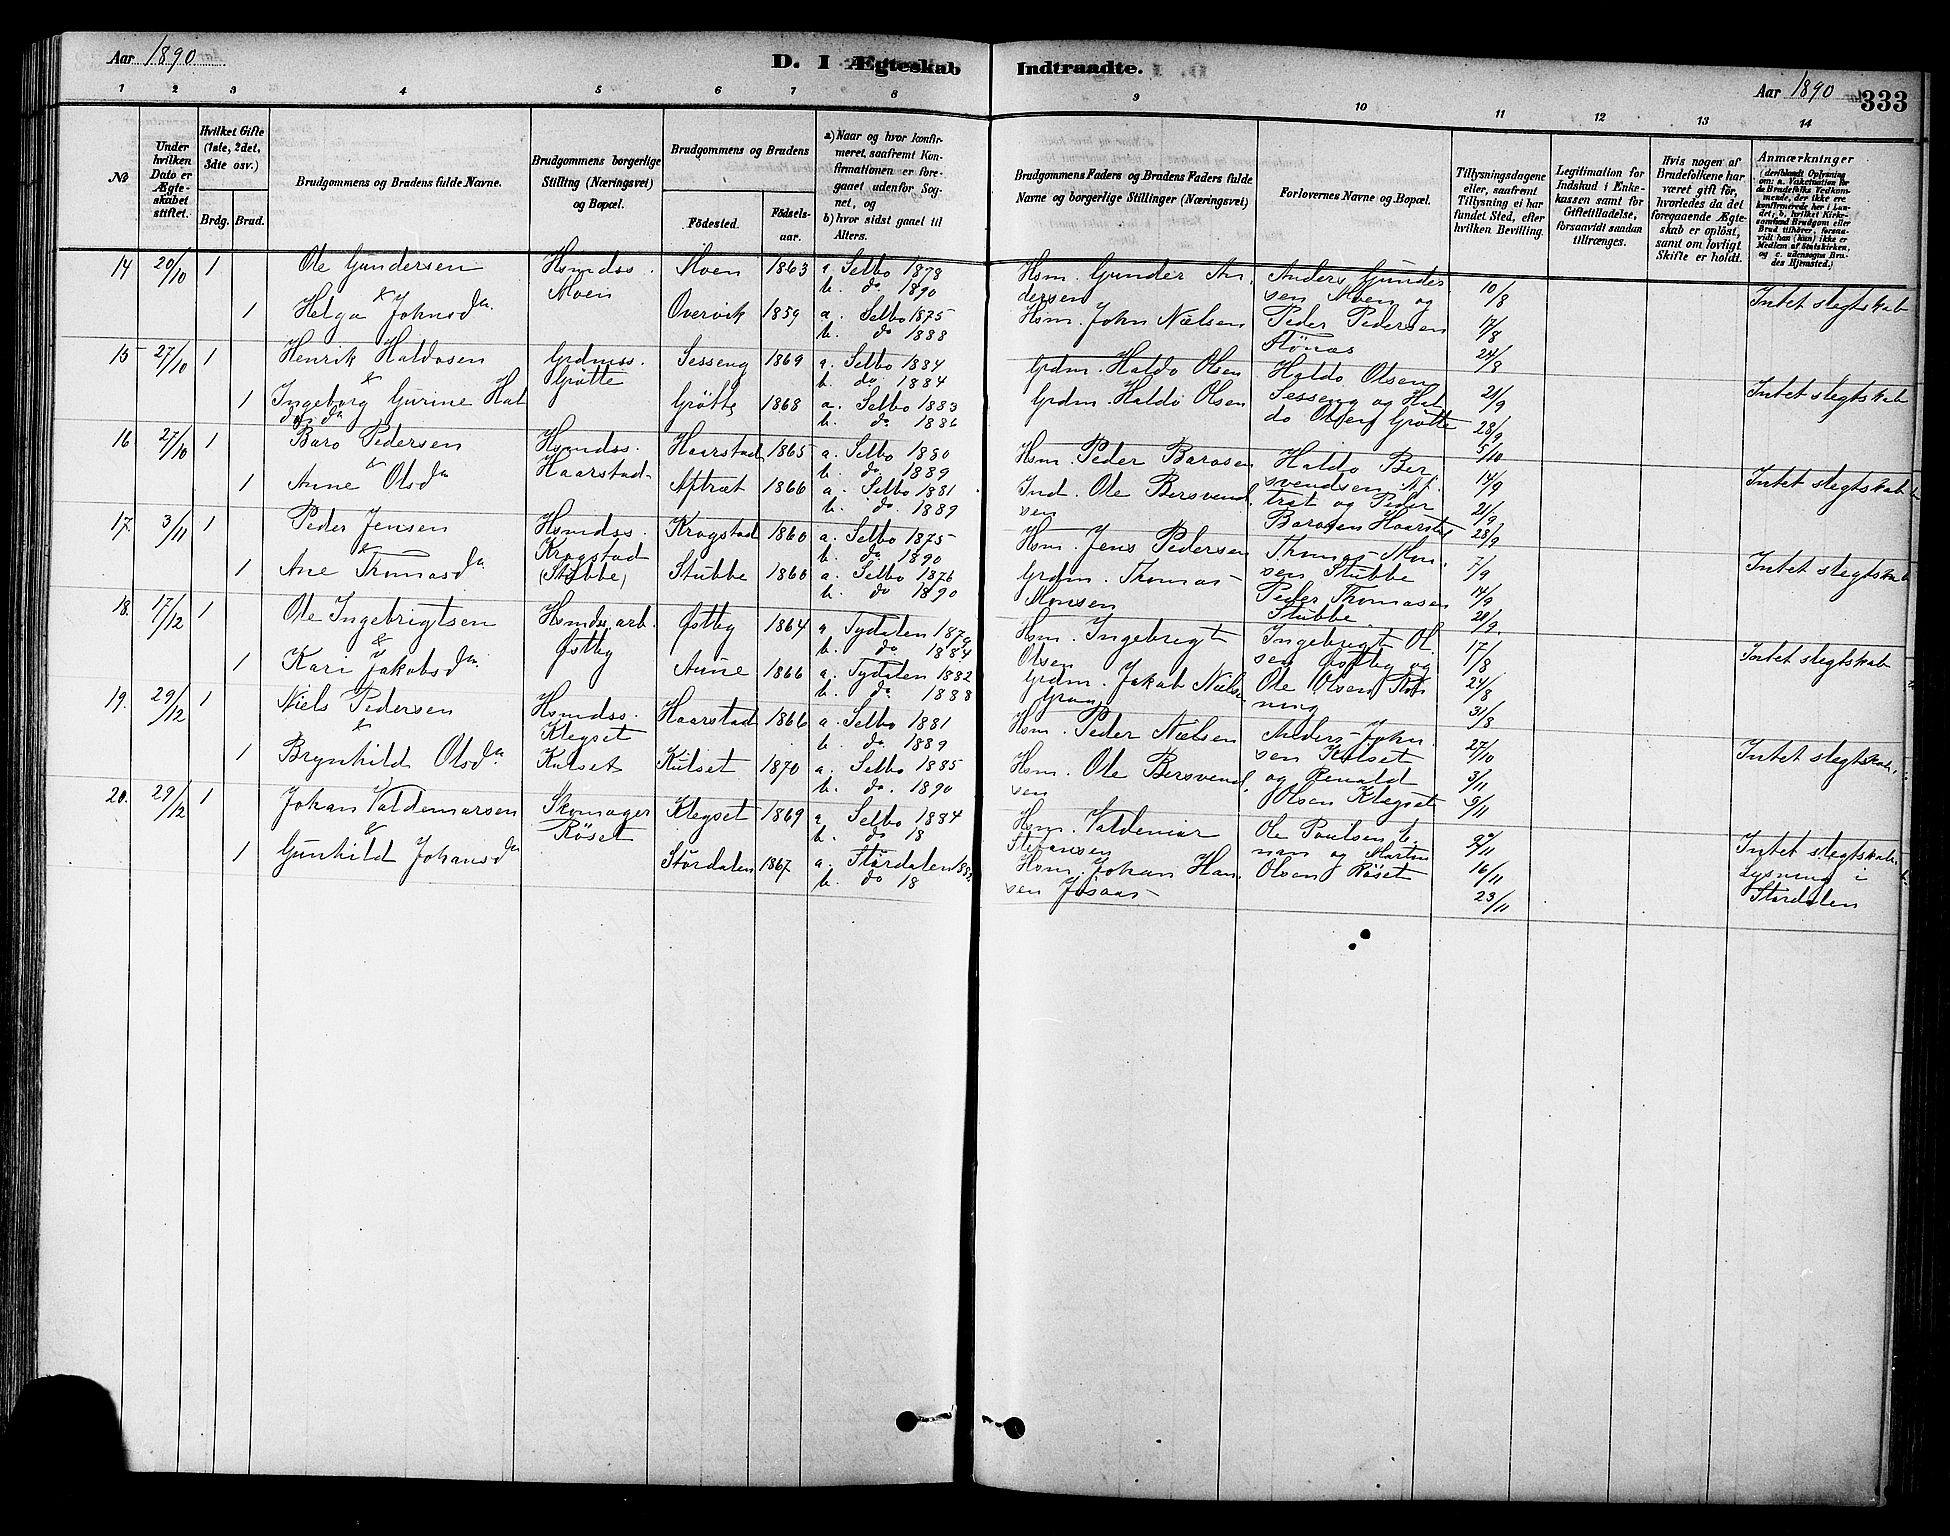 Aar 1890
D. I Ægteskab
Indtraadte.
Aar 1890
333
1 2 3 4 5 6 7 8
9 10 11 12 13 14
No
Under hvilken Dato er Ægteskabet stiftet.
Hvilket Gifte (1ste, 2det, 3dte osv.)
Brdg. Brud.
Brudgommens og Brudens fulde Navne.
Brudgommens borgerlige Stilling (Næringsvei) og Bopæl.
Brudgommens og Brudens
Födested.
Födsels-aar.
a) Naar og hvor konfirmeret, saafremt Konfirmationen er foregaaet udenfor Sognet, og
b) hvor sidst gaaet til Alters.
Brudgommens Faders og Brudens Faders fulde Navne og borgerlige Stillinger (Næringsvei)
Forlovernes Navne og Bopæl.
Tillysningsdagene eller, saafremt Tillysning ei har fundet Sted, efter hvilken Bevilling.
Legitimation for Indskud i Enkekassen samt for Giftetilladelse, forsaavidt saadan tiltrænges.
Hvis nogen af Brudefolkene har været gift før, hvorledes da det foregaaende Ægteskab er oplöst, samt om lovligt Skifte er holdt.
Anmærkninger
(deriblandt Oplysning om: a. Vakcination for de Brudefolks Vedkommende, der ikke ere konfirmerede her i Landet; b. hvilket Kirkesamfund Brudgom eller Brud tilhörer, forsaavidt han (hun) ikke er Medlem af Statskirken, og c. udensogns Brudes Hjemsted.)
14 20/10 1 Ole Gundersen Hsmdss. Moen Moen 1863 a. Selbo 1878 b. do 1890
Hsm. Gunder Andersen
Anders Gundersen Moen og
10/8
&
1 Helga Johnsda. Overvik 1859 a. Selbo 1875 b. do 1888
Hsm. John Nielsen
Peder Pedersen Stönas
17/8
24/8
Intet slegtskab
15 27/10 1 Henrik Haldosen Grdmss. Grötte Sesseng 1869 a. Selbo 1884 b. do. 1884
Grdm. Haldo Olsen
Haldo Olsen Sesseng og Haldo Olsen Grötte
21/9
&
1 Ingeborg Gurine Haldosda Grötte 1868 a. Selbo 1883 b. do 1886
Grdm. Haldo Olsen
28/9
5/10
Intet slegtskab
16 27/10 1 Baro Pedersen Hsmdss. Haarstad Haarstad 1865 a. Selbo 1880 b. do 1889
Hsm. Peder Barosen
Haldo Bersvendsen Aftrat og Peder Barosen Haarstad
14/9
&
1 Anne Olsda Aftrat 1866 a. Selbo 1881 b. do. 1889
Ind. Ole Bersvendsen
21/9
28/9
Intet slegtskab
17. 3/11 1 Peder Jensen Hsmdss. Krogstad (Stubbe) Krogstad 1860 a. Selbo 1875 b. do 1890
Hsm. Jens Pedersen
Thomas Monsen Stubbe
7/9
&
1 Ane Thomasda Stubbe 1860 a. Selbo 1876 b. do 1890
Grdm. Thomas Monsen
Peder Thomasen Stubbe
14/9
21/9.
Intet slegtskab
18. 17/12 1 Ole Ingebrigtsen Hsmds. arb. Østby Østby 1864 a. Tydalen 1879 b. do 1884
Hsm. Ingebrigt Olsen
Ingebrigt Olsen Østby og
17/8
&
1 Kari Jakobsda. Aune 1866 a. Tydalen 1882 b. do. 1888
Grdm. Jakob Nielsen
Ole Olsen
24/8
31/8
Intet slegtskab
19. 29/12 1 Niels Pedersen Hsmdss. Klegset Haarstad 1866 a. Selbo 1881 b. do 1889
Hsm. Peder Nielsen
Anders Johnsen Kulset
27/10
&
1 Brynhild Olsda. Kulset Kulset 1870 a. Selbo 1885 b. do. 1890
Hsm. Ole Bersvendsen
og Renald Olsen Klegset
3/11
9/11
Intet slegtskab.
20. 29/12 1 Johan Valdemarsen Skomager Röset Klegset 1869 a. Selbo 1884 b. do 18
Hsm. Valdemar Stefansen
Ole Paulsen
9/11
&
1 Gunhild Johansda Stördalen 1867 a. Stördalen 1882 b. do 18
Hsm. Johan Hansen
og Martin Olsen Röset
16/11
23/11
Intet slegtskab.
Lysning i Stördalen